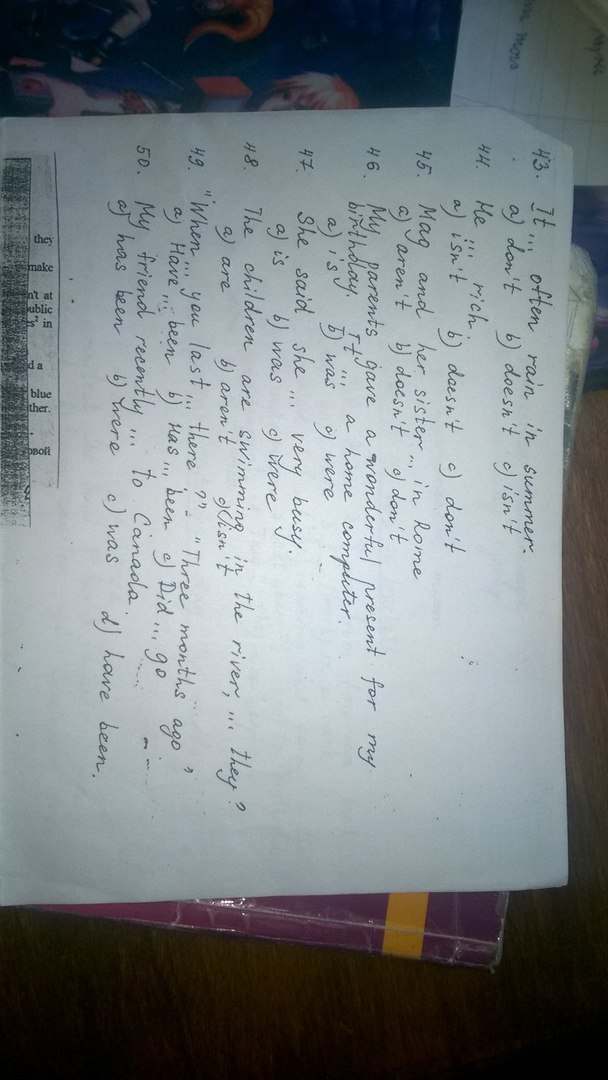 43. It ... often rain in summer.
a) don't b) doesn't c) isn't
44. He ... rich
a) isn't b) doesn't c) don't
45. Mag and her sister ... in home
a) aren't b) doesn't c) don't
46. My parents gave a wonderful present for my
birthday. It ... a home computer.
a) is b) was c) were
47. She said she ... very busy.
a) is b) was c) were
48. The children are swimming in the river, ... they?
a) are b) aren't c) isn't
49. "When ... you last ... there?" - "Three months ago"
a) Have ... been b) Has ... been c) Did ... go
50. My friend recently ... to Canada.
a) has been b) were c) was d) have been.
they
make
n't at
ublic
s" in
d a
blue
ther.
овой